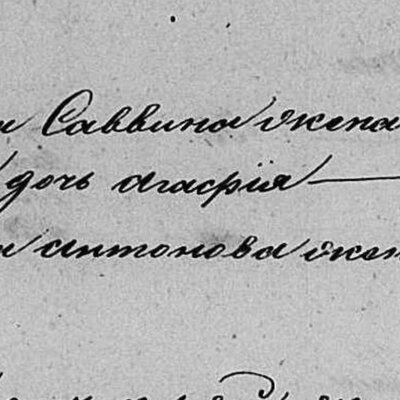 Саввина жена
дочь Агафия
Антонова жена